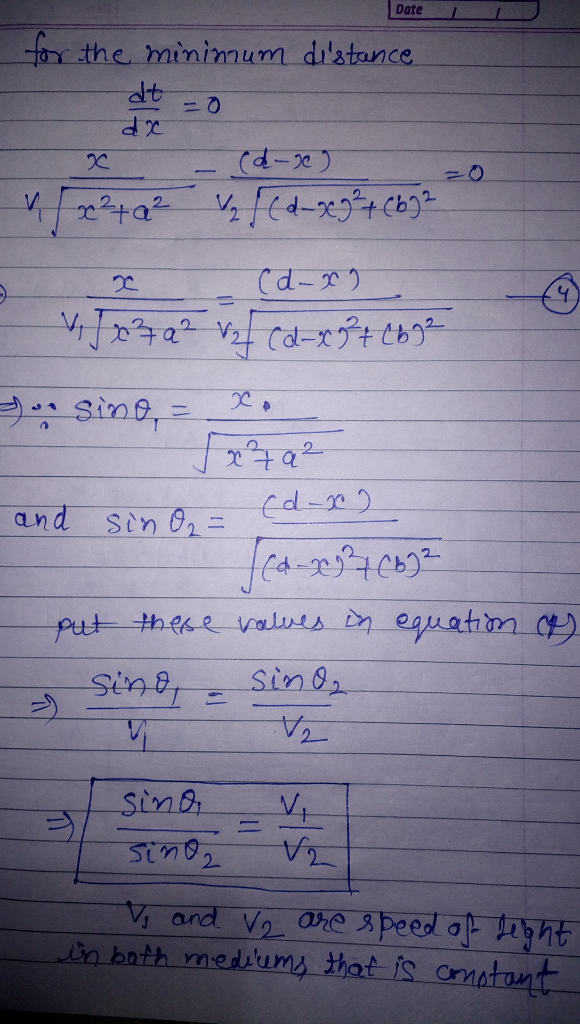 Date / /
for the minimum distance
dt/dx = 0
x / V₁√(x²+a²) - (d-x) / V₂√((d-x)²+(b)²) = 0
x / V₁√(x²+a²) = (d-x) / V₂√((d-x)²+(b)²) — (4)
⇒ ∵ sinθ₁ = x / √(x²+a²)
and sinθ₂ = (d-x) / √((d-x)²+(b)²)
put these values in equation (4)
⇒ sinθ₁/V₁ = sinθ₂/V₂
⇒ sinθ₁/sinθ₂ = V₁/V₂
V₁ and V₂ are speed of light
in both mediums that is constant